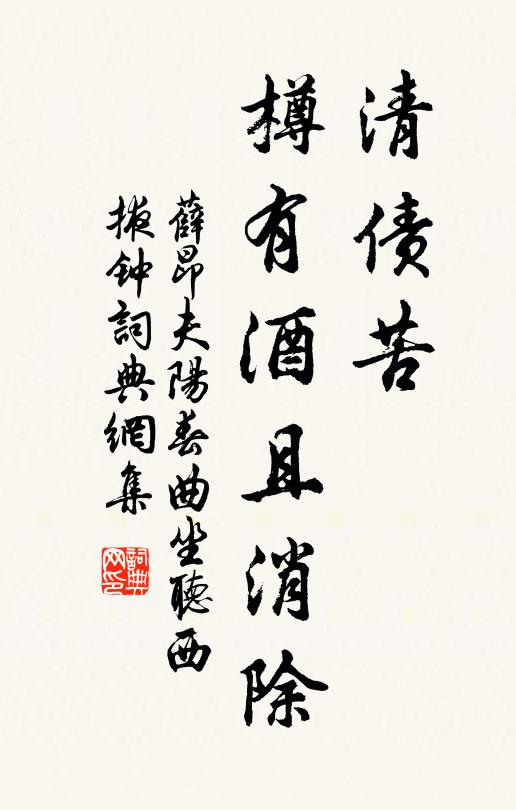 清債苦
樽有酒且消除
薛昂夫陽春曲坐聽西
掖钟詞典網集
詞典
网印